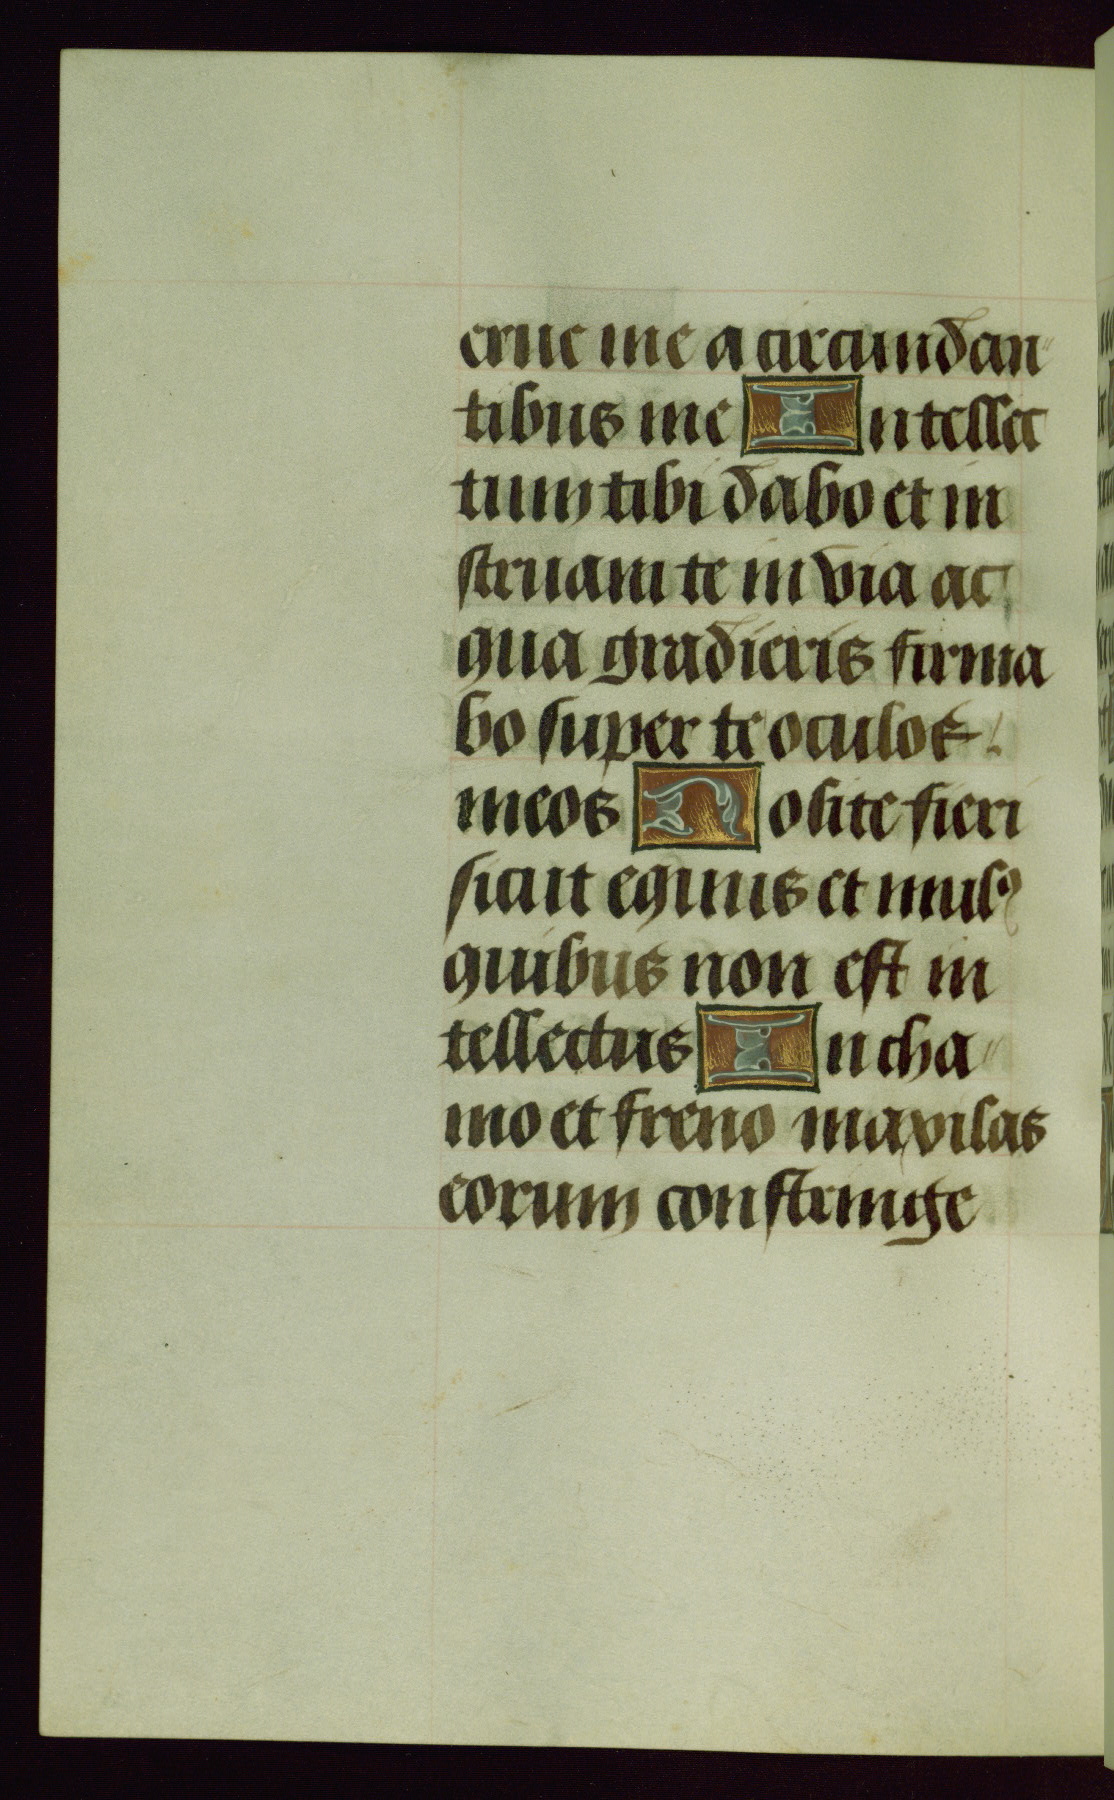 erue me a circumdan
tibus me Intellec
tum tibi dabo et in
struam te in via ac
qua gradieris firma
bo super te oculos
meos Nolite fieri
sicut equus et mulꝰ
quibus non est in
tellectus In cha
mo et freno maxilas
eorum constringe